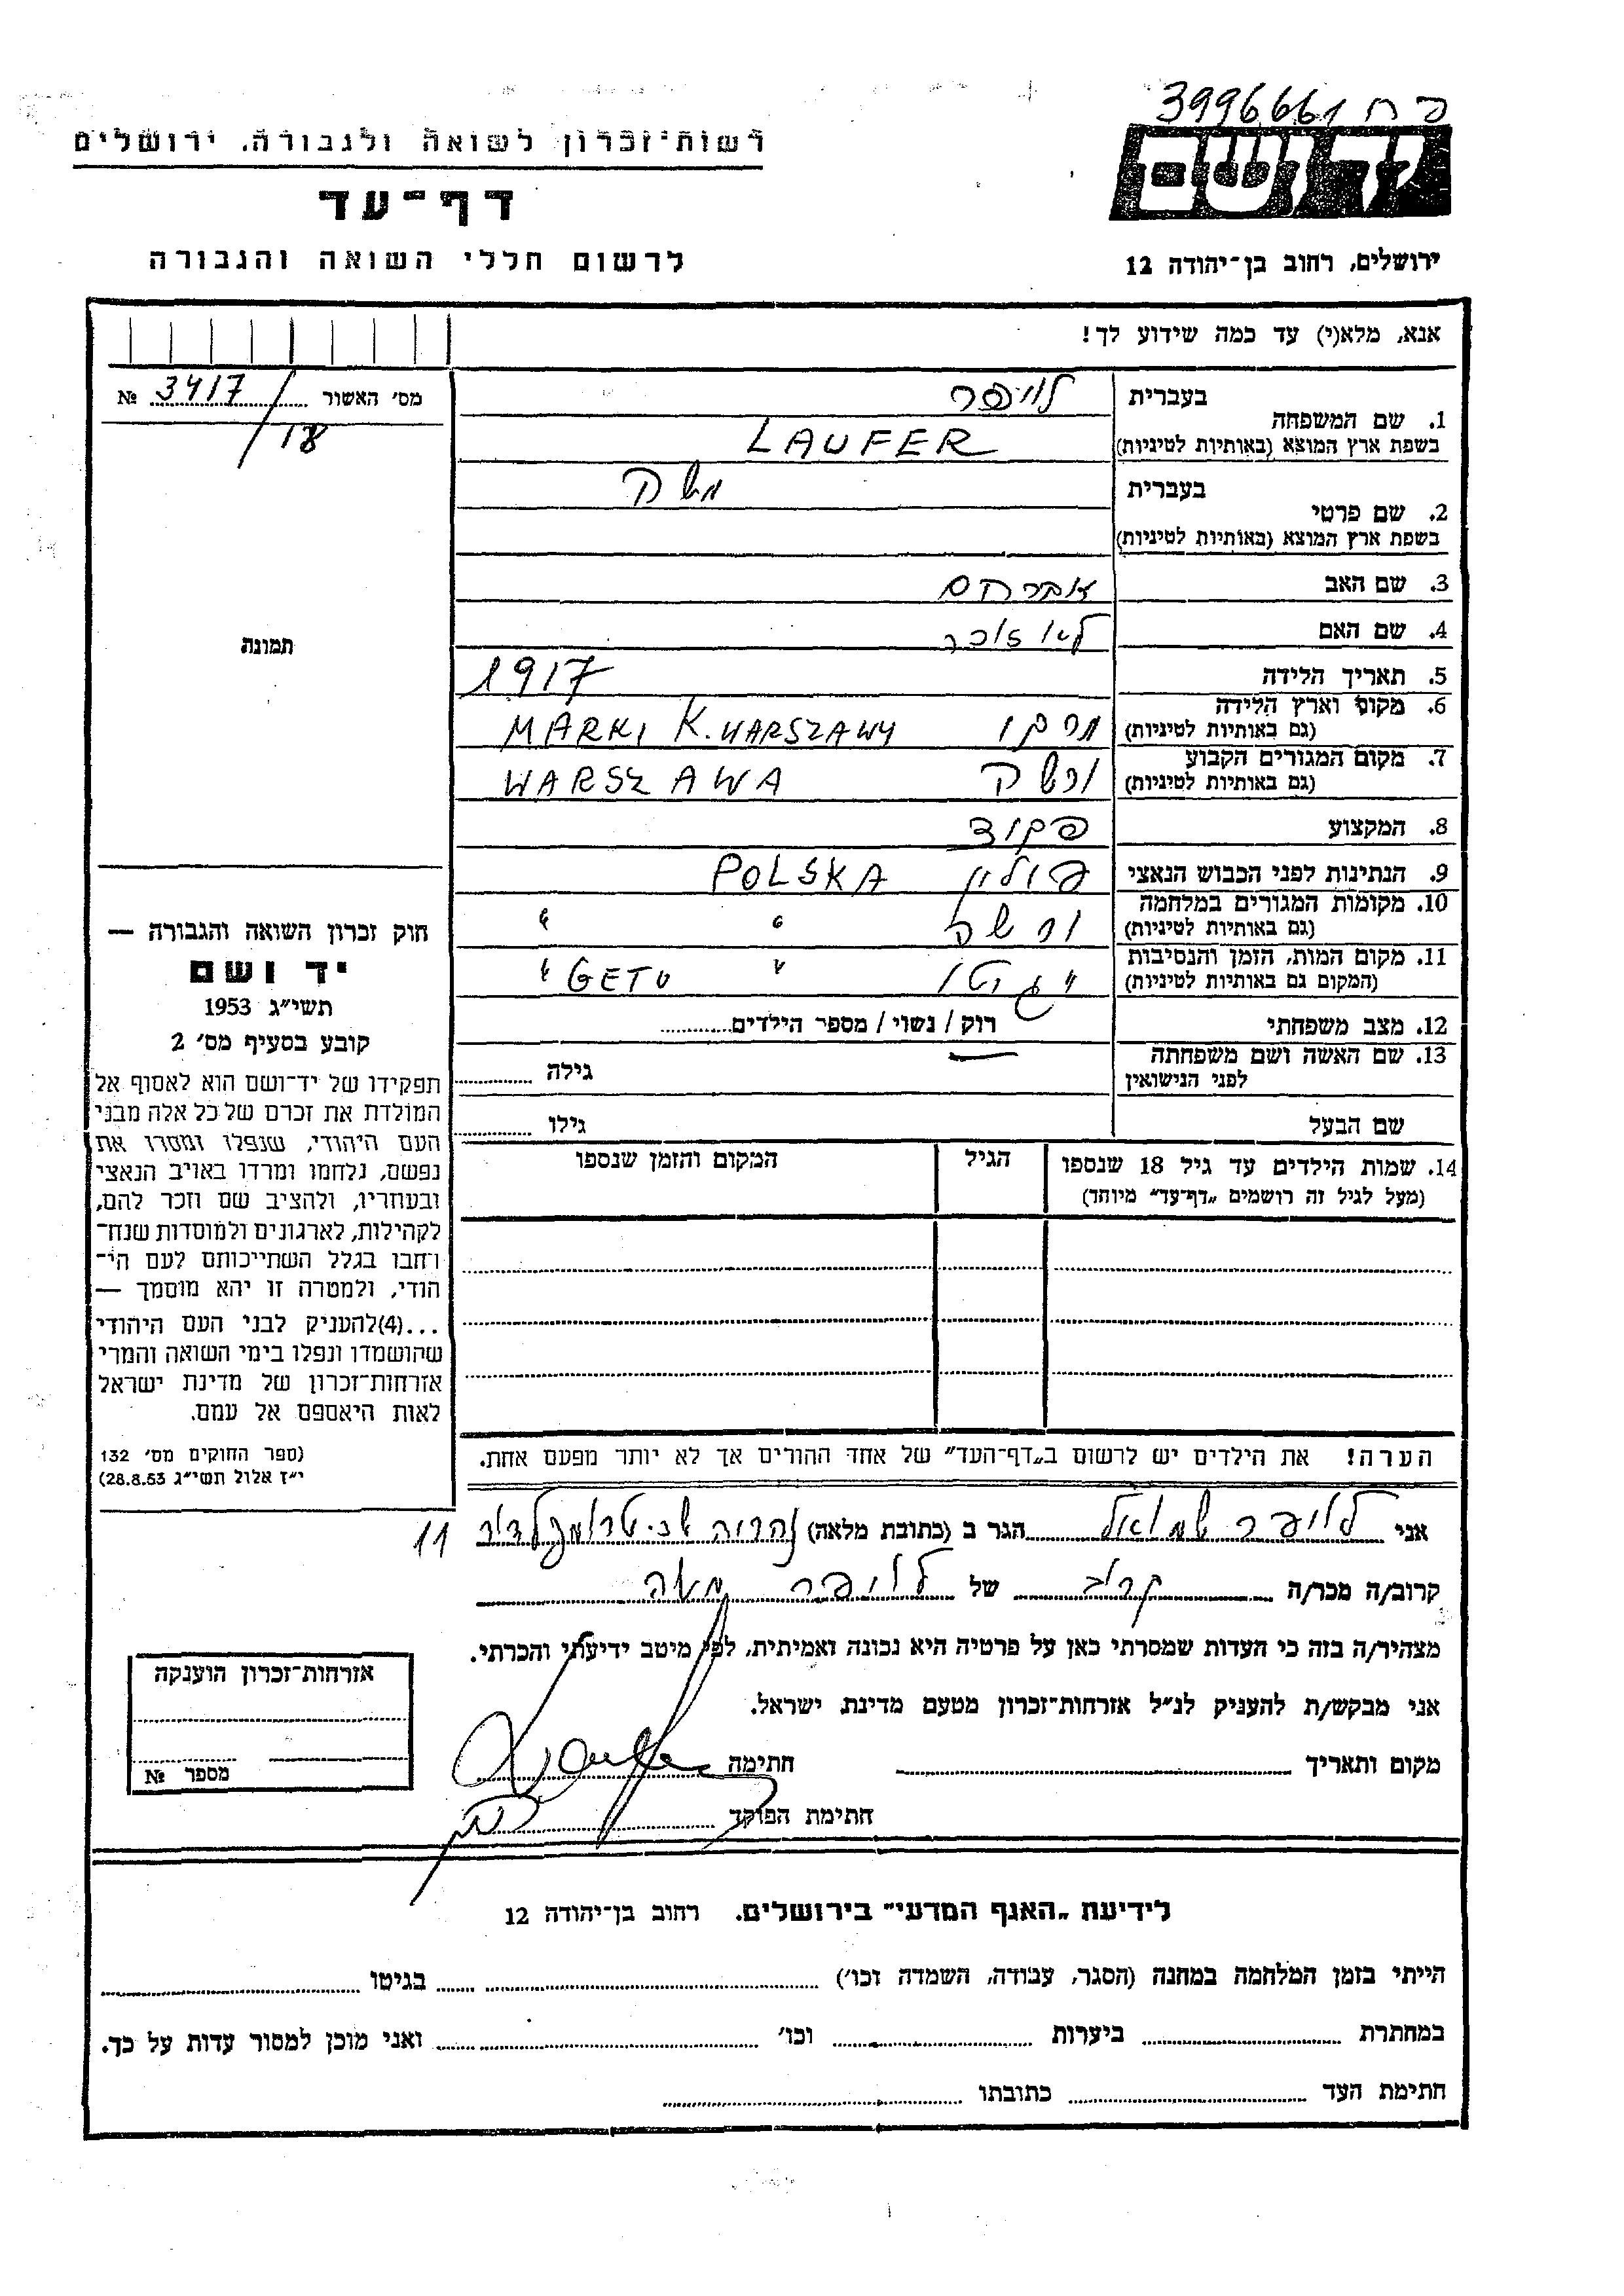 3996661 פ ח
יד ושם
רשות־זכרון לשואה ולגבורה, ירושלים
דף־עד
לרשום חללי השואה והגבורה
ירושלים, רחוב בן־יהודה 12
אנא, מלא(י) עד כמה שידוע לך!
מס׳ האשור № 3417/18
1. שם המשפחה
בעברית לויפר
בשפת ארץ המוצא (באותיות לטיניות) LAUFER
2. שם פרטי
בעברית
בשפת ארץ המוצא (באותיות לטיניות)
3. שם האב אברהם
4. שם האם
5. תאריך הלידה 1917
6. מקום וארץ הלידה
(גם באותיות לטיניות) מרקי MARKI K. WARSZAWY
7. מקום המגורים הקבוע
(גם באותיות לטיניות) ורשה WARSZAWA
8. המקצוע פקיד
9. הנתינות לפני הכבוש הנאצי פולין POLSKA
10. מקומות המגורים במלחמה
(גם באותיות לטיניות) ורשה " "
11. מקום המות, הזמן והנסיבות
(המקום גם באותיות לטיניות) גיטו " GETO "
12. מצב משפחתי רוק / נשוי / מספר הילדים
13. שם האשה ושם משפחתה
לפני הנישואין גילה
שם הבעל גילו
14. שמות הילדים עד גיל 18 שנספו
(מעל לגיל זה רושמים „דף־עד״ מיוחד)
הגיל
המקום והזמן שנספו
תמונה
חוק זכרון השואה והגבורה —
יד ושם
תשי״ג 1953
קובע בסעיף מס׳ 2
תפקידו של יד־ושם הוא לאסוף אל
המולדת את זכרם של כל אלה מבני
העם היהודי, שנפלו ומסרו את
נפשם, נלחמו ומרדו באויב הנאצי
ובעוזריו, ולהציב שם וזכר להם,
לקהילות, לארגונים ולמוסדות שנח־
רבו בגלל השתייכותם לעם הי־
הודי, ולמטרה זו יהא מוסמך —
...(4)להעניק לבני העם היהודי
שהושמדו ונפלו בימי השואה והמרי
אזרחות־זכרון של מדינת ישראל
לאות היאספם אל עמם.
(ספר החוקים מס׳ 132
י״ז אלול תשי״ג 28.8.53)
הערה! את הילדים יש לרשום ב„דף־העד״ של אחד ההורים אך לא יותר מפעם אחת.
אני לויפר שמואל הגר ב (כתובת מלאה) נהריה שכ. טרומפלדור 11
קרוב/ה מכר/ה קרוב של לויפר משה
מצהיר/ה בזה כי העדות שמסרתי כאן על פרטיה היא נכונה ואמיתית, לפי מיטב ידיעתי והכרתי.
אני מבקש/ת להעניק לנ״ל אזרחות־זכרון מטעם מדינת ישראל.
מקום ותאריך חתימה
חתימת הפוקד
אזרחות־זכרון הוענקה
מספר №
לידיעת „האגף המדעי״ בירושלים. רחוב בן־יהודה 12
הייתי בזמן המלחמה במחנה (הסגר, עבודה, השמדה וכו׳) בגיטו
במחתרת ביערות וכו׳ ואני מוכן למסור עדות על כך.
חתימת העד כתובתו